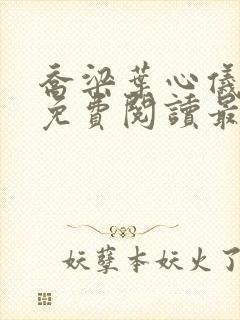 喬梁葉心儀
免費閱讀最
妖孽本妖火了